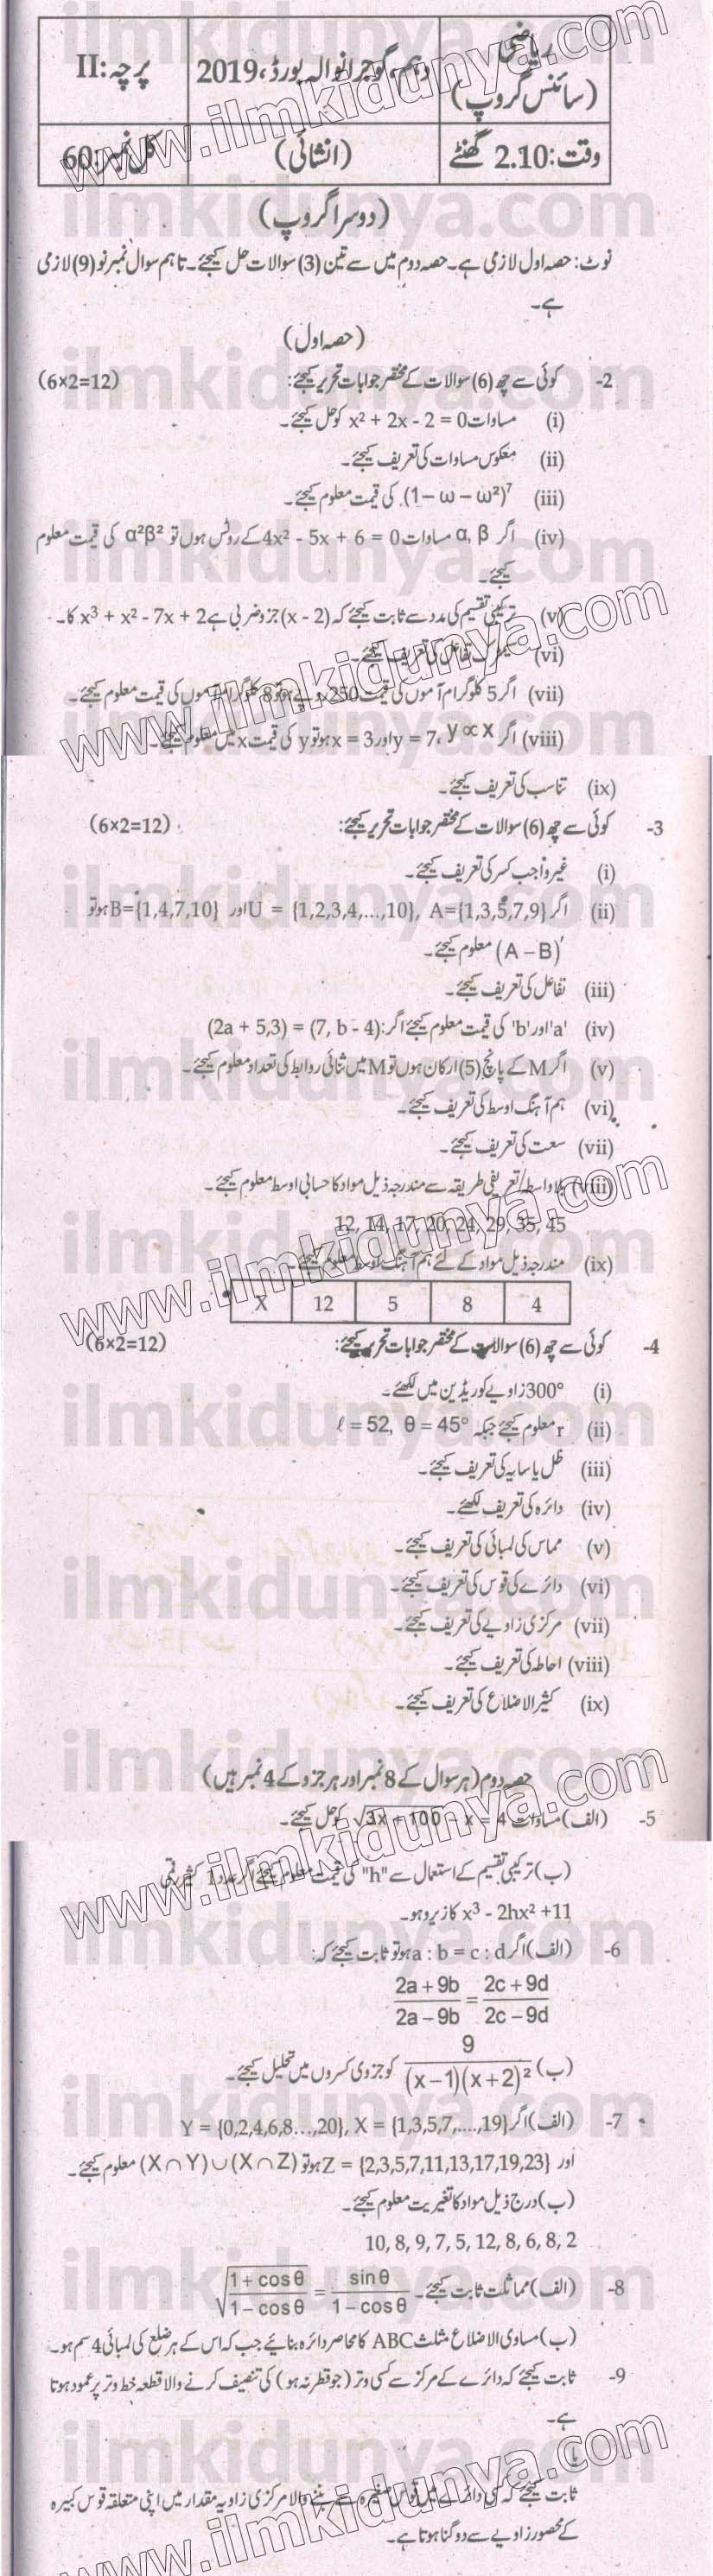 ریاضی (سائنس گروپ) دہم، گوجرانوالہ بورڈ، 2019 پرچہ: II
وقت: 2.10 گھنٹے (انشائی) کل نمبر: 60
(دوسرا گروپ)
نوٹ: حصہ اول لازمی ہے۔ حصہ دوم میں سے تین (3) سوالات حل کیجئے۔ تاہم سوال نمبر نو (9) لازمی
ہے۔
(حصہ اول)
2- کوئی سے چھ (6) سوالات کے مختصر جوابات تحریر کیجئے: (6×2=12)
(i) مساوات x² + 2x - 2 = 0 کو حل کیجئے۔
(ii) معکوس مساوات کی تعریف کیجئے۔
(iii) (1 – ω – ω²)⁷ کی قیمت معلوم کیجئے۔
(iv) اگر α, β مساوات 4x² - 5x + 6 = 0 کے روٹس ہوں تو α²β² کی قیمت معلوم
کیجئے۔
(v) ترکیبی تقسیم کی مدد سے ثابت کیجئے کہ (x - 2) جزو ضربی ہے x³ + x² - 7x + 2 کا۔
(vi) تفاعل کی تعریف کیجئے۔
(vii) اگر 5 کلوگرام آموں کی قیمت 250 روپے ہو تو 8 کلوگرام آموں کی قیمت معلوم کیجئے۔
(viii) اگر y ∝ x، y = 7 اور x = 3 ہو تو y کی قیمت x میں معلوم کیجئے۔
(ix) تناسب کی تعریف کیجئے۔
3- کوئی سے چھ (6) سوالات کے مختصر جوابات تحریر کیجئے: (6×2=12)
(i) غیر واجب کسر کی تعریف کیجئے۔
(ii) اگر U = {1,2,3,4,...,10}, A={1,3,5,7,9} اور B={1,4,7,10} ہو تو
(A – B)′ معلوم کیجئے۔
(iii) تفاعل کی تعریف کیجئے۔
(iv) 'a' اور 'b' کی قیمت معلوم کیجئے اگر: (2a + 5,3) = (7, b - 4)
(v) اگر M کے پانچ (5) ارکان ہوں تو M میں ثنائی روابط کی تعداد معلوم کیجئے۔
(vi) ہم آہنگ اوسط کی تعریف کیجئے۔
(vii) سعت کی تعریف کیجئے۔
(viii) بلاواسطہ/تعریفی طریقہ سے مندرجہ ذیل مواد کا حسابی اوسط معلوم کیجئے۔
12, 14, 17, 20, 24, 29, 35, 45
(ix) مندرجہ ذیل مواد کے لئے ہم آہنگ اوسط معلوم کیجئے۔
X 12 5 8 4
4- کوئی سے چھ (6) سوالات کے مختصر جوابات تحریر کیجئے: (6×2=12)
(i) 300° زاویے کو ریڈین میں لکھئے۔
(ii) r معلوم کیجئے جبکہ ℓ = 52, θ = 45°
(iii) ظل یا سایہ کی تعریف کیجئے۔
(iv) دائرہ کی تعریف لکھئے۔
(v) مماس کی لمبائی کی تعریف کیجئے۔
(vi) دائرے کی قوس کی تعریف کیجئے۔
(vii) مرکزی زاویے کی تعریف کیجئے۔
(viii) احاطہ کی تعریف کیجئے۔
(ix) کثیر الاضلاع کی تعریف کیجئے۔
حصہ دوم (ہر سوال کے 8 نمبر اور ہر جزو کے 4 نمبر ہیں)
5- (الف) مساوات √(3x + 100) - x = 4 کو حل کیجئے۔
(ب) ترکیبی تقسیم کے استعمال سے "h" کی قیمت معلوم کیجئے اگر عدد 1 کثیر رقمی
x³ - 2hx² +11 کا زیرو ہو۔
6- (الف) اگر a : b = c : d ہو تو ثابت کیجئے کہ:
(2a + 9b)/(2a – 9b) = (2c + 9d)/(2c – 9d)
(ب) 9/((x – 1)(x + 2)²) کو جزوی کسروں میں تحلیل کیجئے۔
7- (الف) اگر Y = {0,2,4,6,8...,20}, X = {1,3,5,7,....,19}
اور Z = {2,3,5,7,11,13,17,19,23} ہو تو (X∩Y)∪(X∩Z) معلوم کیجئے۔
(ب) درج ذیل مواد کا تغیریت معلوم کیجئے۔
10, 8, 9, 7, 5, 12, 8, 6, 8, 2
8- (الف) مماثلت ثابت کیجئے۔ √((1 + cosθ)/(1 – cosθ)) = sinθ/(1 – cosθ)
(ب) مساوی الاضلاع مثلث ABC کا محاصر دائرہ بنائیے جب کہ اس کے ہر ضلع کی لمبائی 4 سم ہو۔
9- ثابت کیجئے کہ دائرے کے مرکز سے کسی وتر (جو قطر نہ ہو) کی تنصیف کرنے والا قطعہ خط وتر پر عمود ہوتا
ہے۔
یا
ثابت کیجئے کہ کسی دائرے میں قوس صغیرہ سے بننے والا مرکزی زاویہ مقدار میں اپنی متعلقہ قوس کبیرہ
کے محصور زاویے سے دوگنا ہوتا ہے۔
www.ilmkidunya.com
ilmkidunya.com